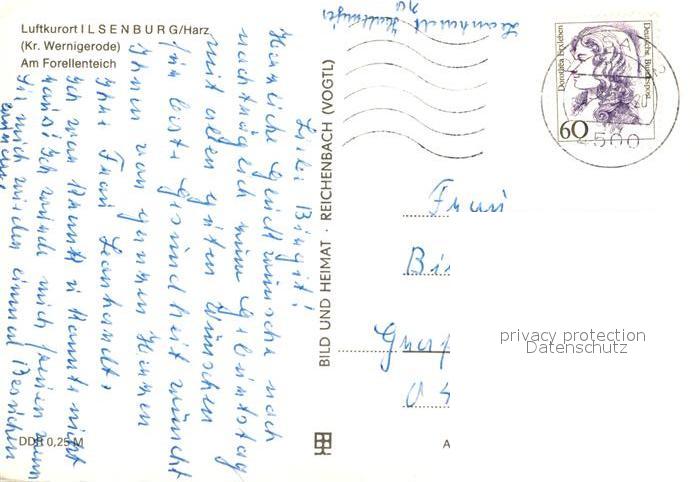 Luftkurort ILSENBURG/Harz
(Kr. Wernigerode)
Am Forellenteich
Liebe Birgit!
Herzliche Glückwünsche nach
nachträglich zum Geburtstag
mit allen guten Wünschen
für beste Gesundheit wünscht
Ihnen von ganzem Herzen
Ihre Frau
Ich war krank u. konnte nicht
Ich würde mich freuen wenn
Sie mich wieder einmal besuchen
würden.
DDR 0,25 M
BILD UND HEIMAT · REICHENBACH (VOGTL)
Dorothea Erxleben
Deutsche Bundespost
60
4500
Frau
Bi
A
privacy protection
Datenschutz